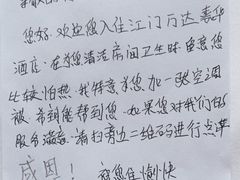 您好，欢迎您入住江门万达嘉华
酒店，在为您清洁房间卫生时，留意您
比较怕热，我特意为您加一张空调
被，希到能帮到您，如果您对我们的
服务满意，请扫旁边二维码进行点评
感恩！
祝您住愉快